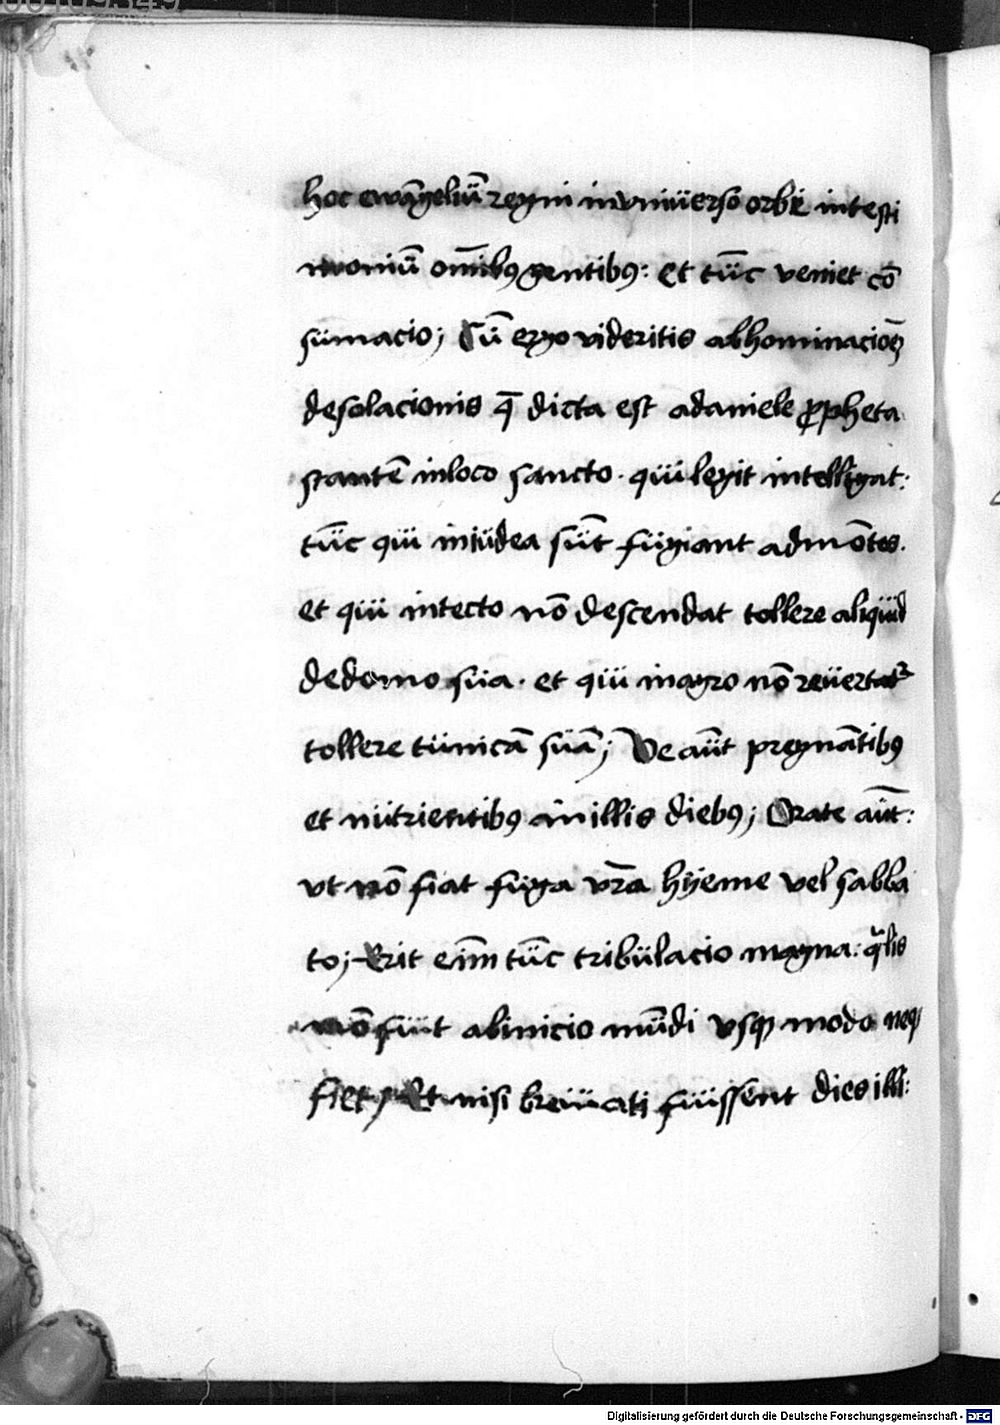 hoc ewāgeliū regni in vniüerso orbe in testi
moniū om̄ibꝯ gentibꝯ: et tūc veniet cō
sümacio; Cū ergo videritis abhominacioēz
desolacionis q̄ dicta est a daniele ꝓpheta
stantē in loco sancto · qüi legit intelligat:
tūc qüi in iüdea sūt fügiant ad mōtes.
et qüi in tecto nō descendat tollere aliqüid
de domo süa · et qüi in agro nō reüertatᷣ
tollere tünicā süā; Ve aūt pregnātibꝯ
et nütrientibꝯ in illis diebꝯ; Orate aūt:
vt nō fiat füga vr̄a hÿeme vel sabba
to; Erit eīm tūc tribülacio magna: qͣlis
nō füit ab inicio mūdi vsqꝫ modo neqꝫ
fiet; Et nisi breüiati füissent dies illi:
00109349
Digitalisierung gefördert durch die Deutsche Forschungsgemeinschaft - DFG